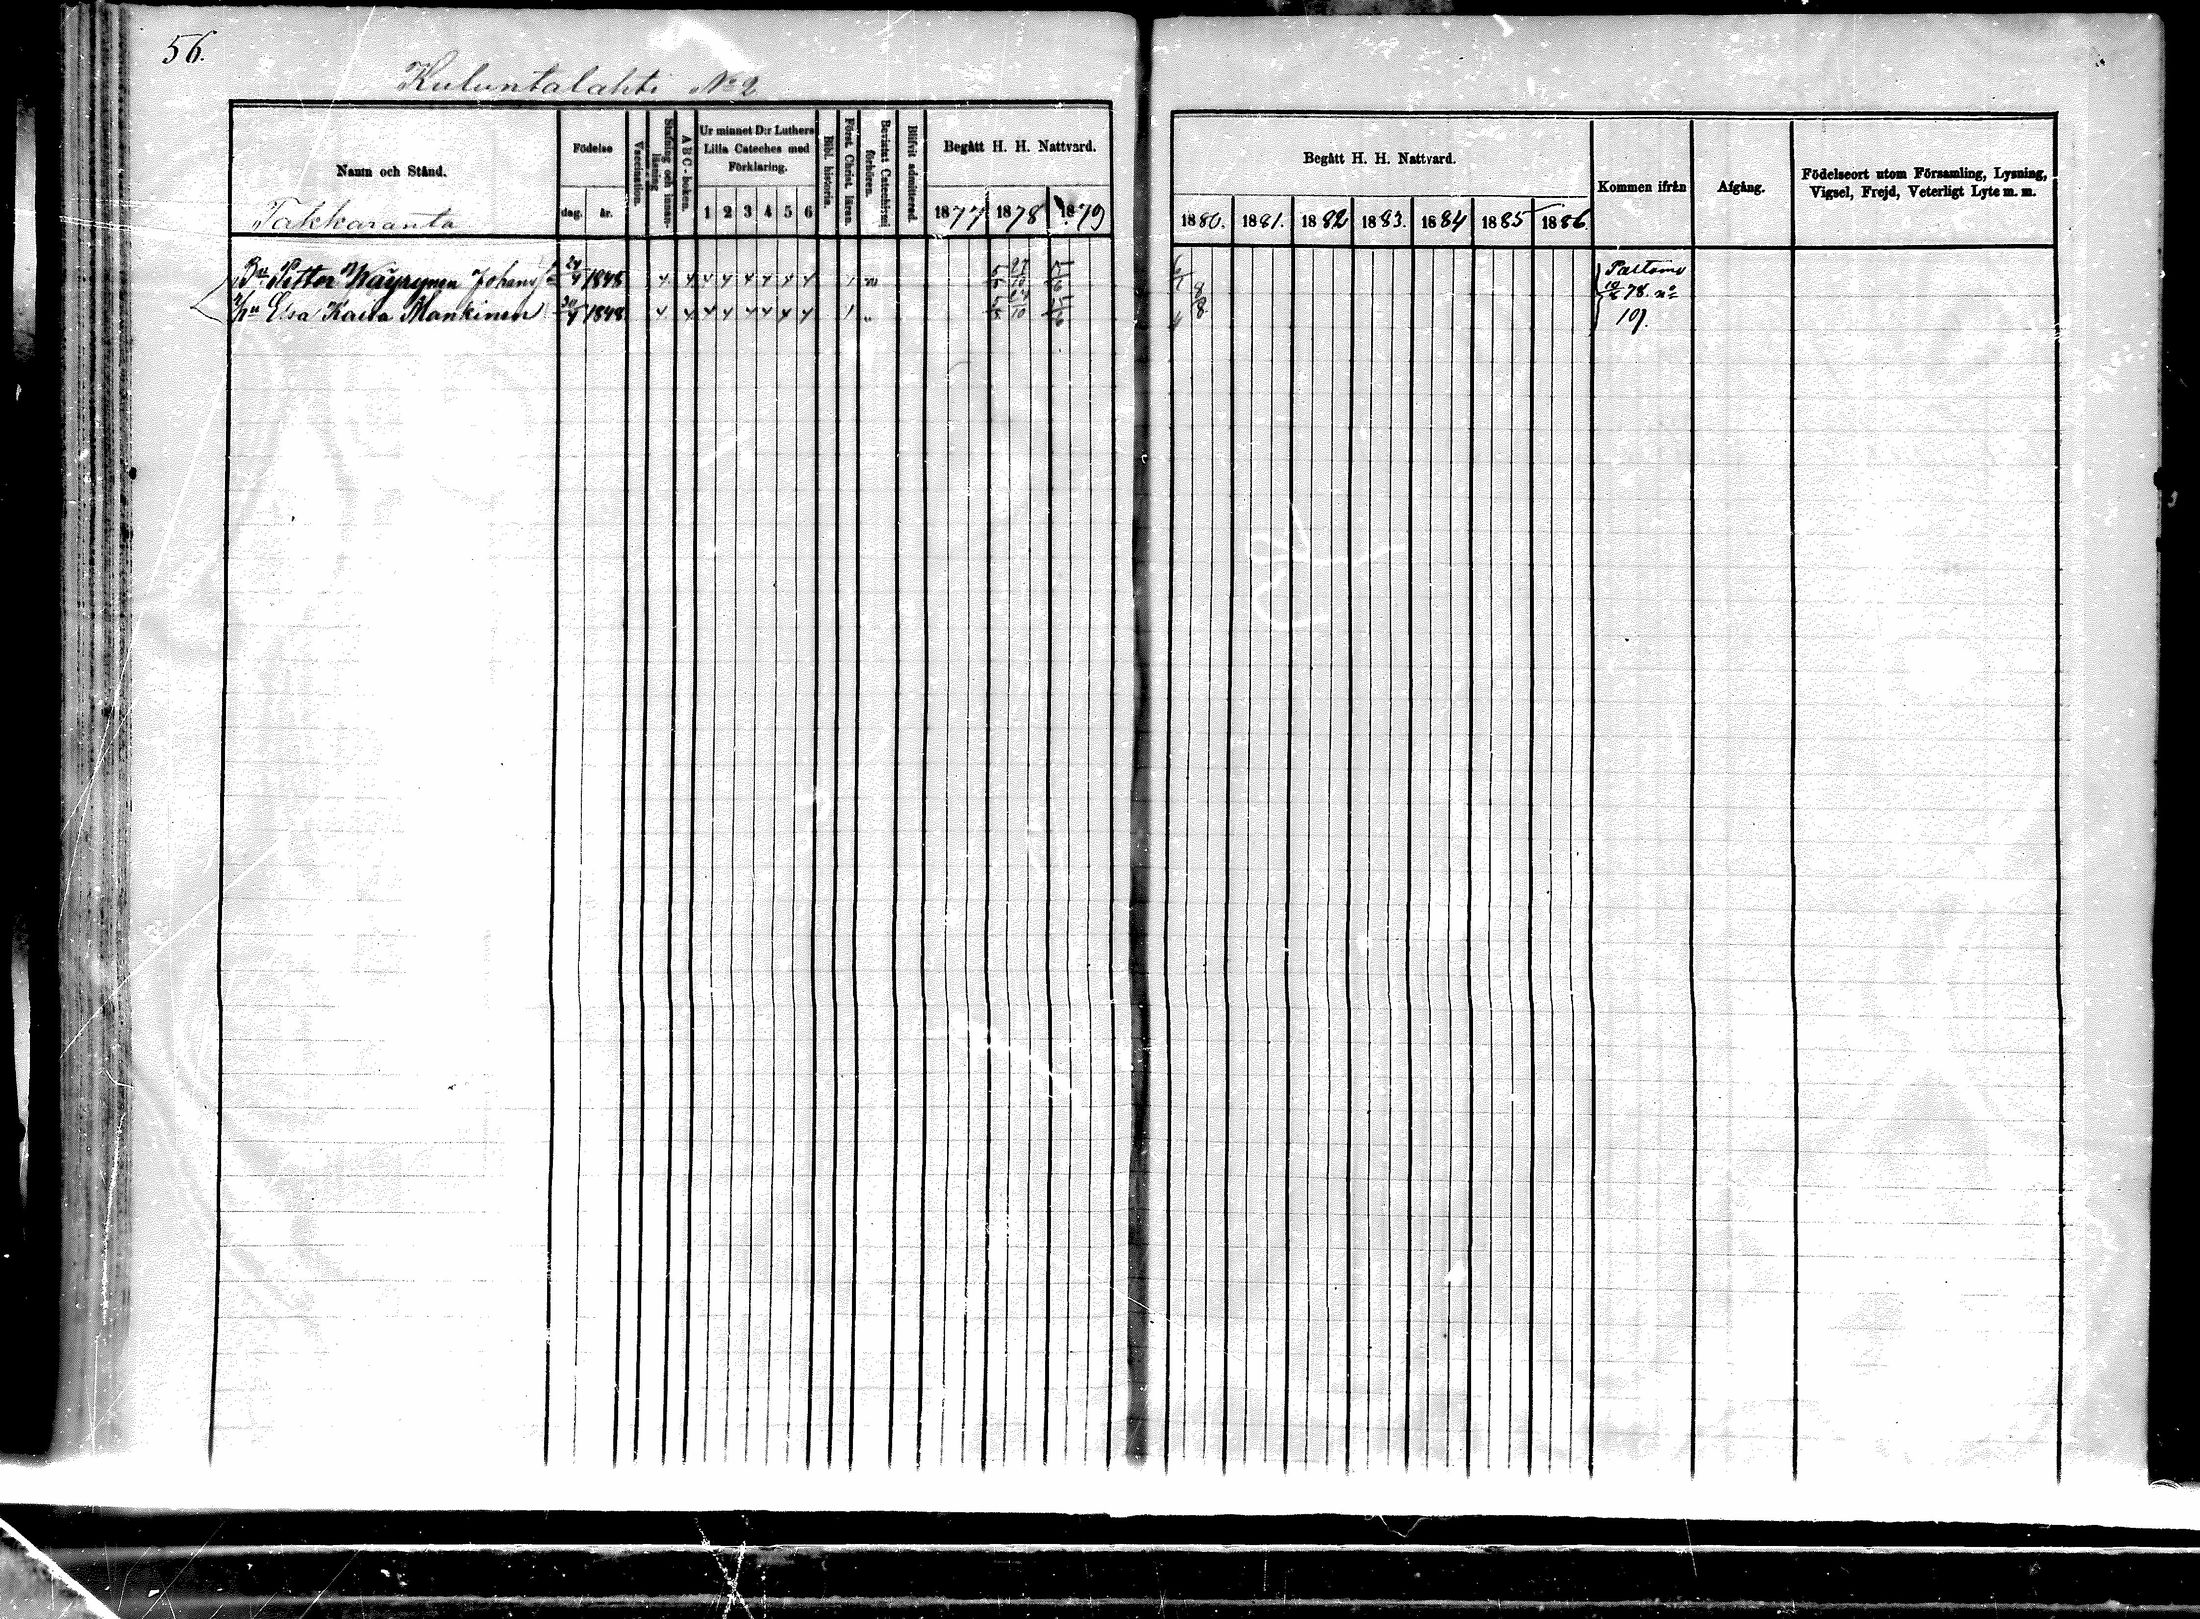 56.
Kuluntalahti No 2
Namn och Stånd.
Födelse
dag. år.
Vaccination.
Stafning och innanläsning
A B C-boken.
Ur minnet D:r Luthers Lilla Cateches med Förklaring.
1 2 3 4 5 6
Bibl. historia.
Först. Christ. läran.
Bevistat Catechismi förhören.
Blifvit admitterad.
Begått H. H. Nattvard.
1877 1878 1879
Takkaranta
Petter Wäyrynen Johans 24/4 1848
Elsa Kaisa Mankinen 30/4 1848
Begått H. H. Nattvard.
1880. 1881. 1882 1883. 1884 1885 1886.
Kommen ifrån
Afgång.
Födelseort utom Församling, Lysning, Vigsel, Frejd, Veterligt Lyte m. m.
Paltamo
78. no
107.